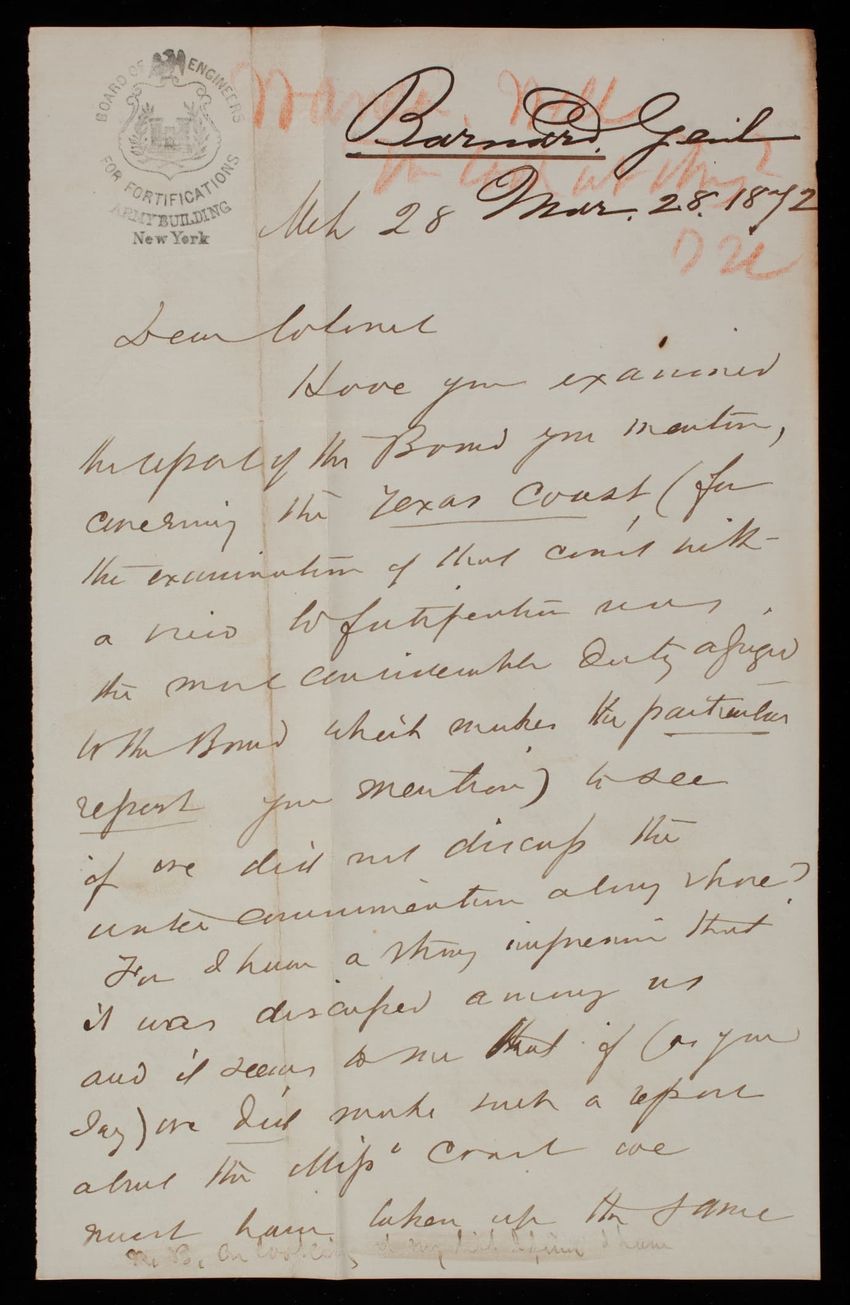 BOARD OF ENGINEERS
FOR FORTIFICATIONS
ARMY BUILDING
New York
Barnard, Genl
Mar. 28. 1872
Mch 28
Dear Colonel
Have you examined
the report of the Board you mention,
concerning the Texas Coast, (for
the examination of that coast with
a view to fortification was
the most considerable duty assigned
to the Board which makes the particular
report you mention) to see
if we did not discuss the
water communication along shore?
For I have a strong impression that
it was discussed among us
and it seems to me that if (as you
say) we did make such a report
about the Missi Coast we
must have taken up the same
N. B. On looking at my